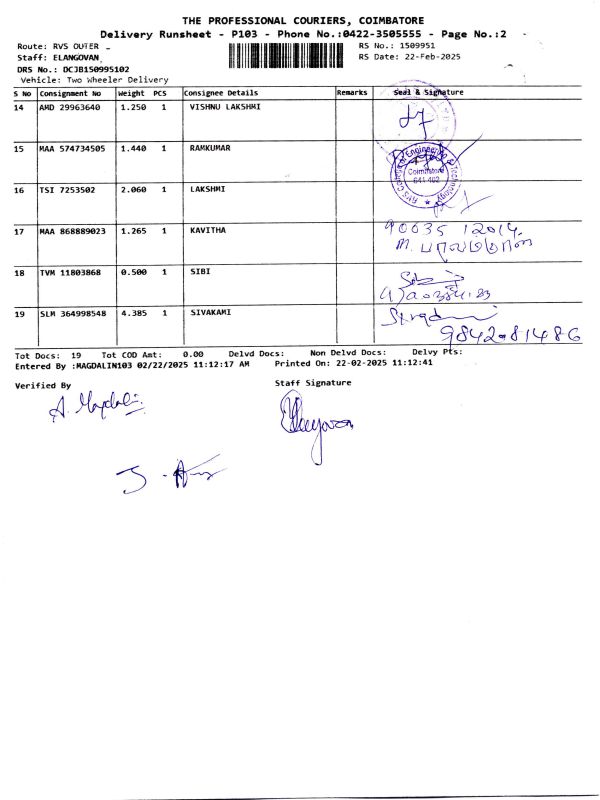 THE PROFESSIONAL COURIERS, COIMBATORE
Delivery Runsheet - P103 - Phone No.:0422-3505555 - Page No.:2
Route: RVS OUTER
RS No.: 1509951
Staff: ELANGOVAN
RS Date: 22-Feb-2025
DRS No.: DCJB150995102
Vehicle: Two Wheeler Delivery
S No Consignment No Weight PCS Consignee Details Remarks Seal & Signature
14 AMD 29963640 1.250 1 VISHNU LAKSHMI
15 MAA 574734505 1.440 1 RAMKUMAR
RVS College of Engineering & Technology
Coimbatore
641 402
16 TSI 7253502 2.060 1 LAKSHMI
17 MAA 868889023 1.265 1 KAVITHA
18 TVM 11803868 0.500 1 SIBI
19 SLM 364998548 4.385 1 SIVAKAMI
9842081486
Tot Docs: 19 Tot COD Amt: 0.00 Delvd Docs: Non Delvd Docs: Delvy Pts:
Entered By :MAGDALIN103 02/22/2025 11:12:17 AM Printed On: 22-02-2025 11:12:41
Verified By
Staff Signature
A. Magdalin
Elangovan